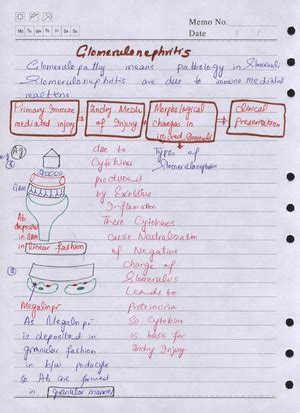 Memo No.
Mo Tu We Th Fr Sa Su
Date / /
Glomerulonephritis
Glomerulopathy means pathology in Glomeruli
Glomerulonephritis are due to immune mediated
reactions
Primary Immune
mediated injury
2ndry Media
of Injury
Morphological
changes in
injured Glomeruli
Clinical
Presentation
Types of
Glomerulonephritis
Ag
due to
Cytokines
produced
by Excessive
Inflammation
These Cytokines
cause Neutralization
of Negative
charge of
Glomerulus
Leads to
Proteinuria
So Cytokine
is basis for
2ndry Injury.
Ab
deposited
in
linear fashion
Megalinpr
As Megalinpr
is deposited in
granular fashion
in b/w podocyte
So Ab are formed
in granular manner